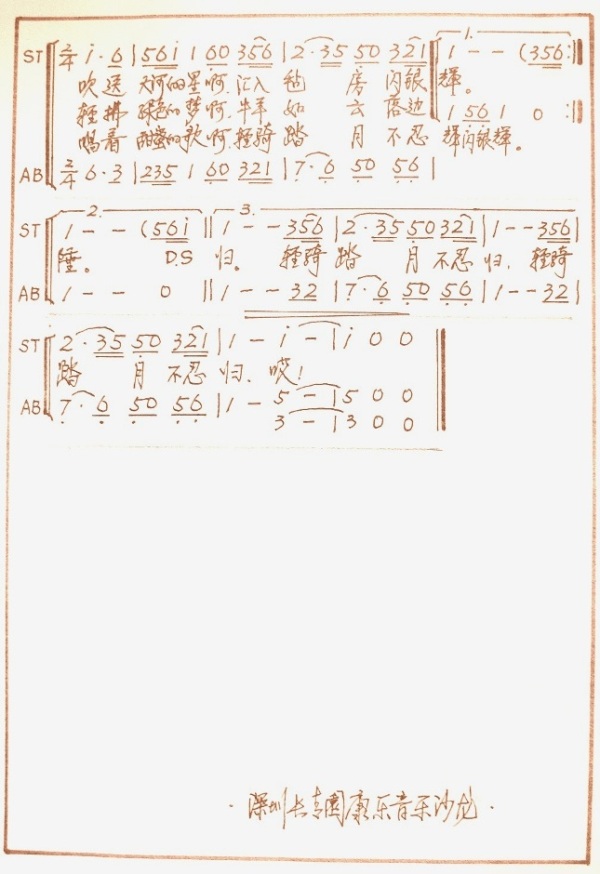 ST 2/4 i·6 | 561 1 60 356 | 2·35 50 321 | 1. 1 - - (356:||
吹送 天河的星啊,汇入 毡 房 闪银 辉。
轻拂 绿色的梦啊,牛羊 如 云 落边 1 561 1 0 :||
唱着 甜蜜的歌啊,轻骑 踏 月 不忍 辉闪银辉。
AB 2/4 6·3 | 235 1 60 321 | 7·6 50 56 |
ST 2. 1 - - (561 || 3. 1 - - 356 | 2·35 50 321 | 1 - - 356 |
睡。 D.S 归。 轻骑 踏 月 不忍 归、 轻骑
AB 1 - - 0 || 1 - - 32 | 7·6 50 56 | 1 - - 32 |
ST 2·35 50 321 | 1 - i - | i 0 0
踏 月 不忍 归、 哎!
AB 7·6 50 56 | 1 - 5 - | 5 0 0
3 - | 3 0 0
·深圳长青园康乐音乐沙龙·